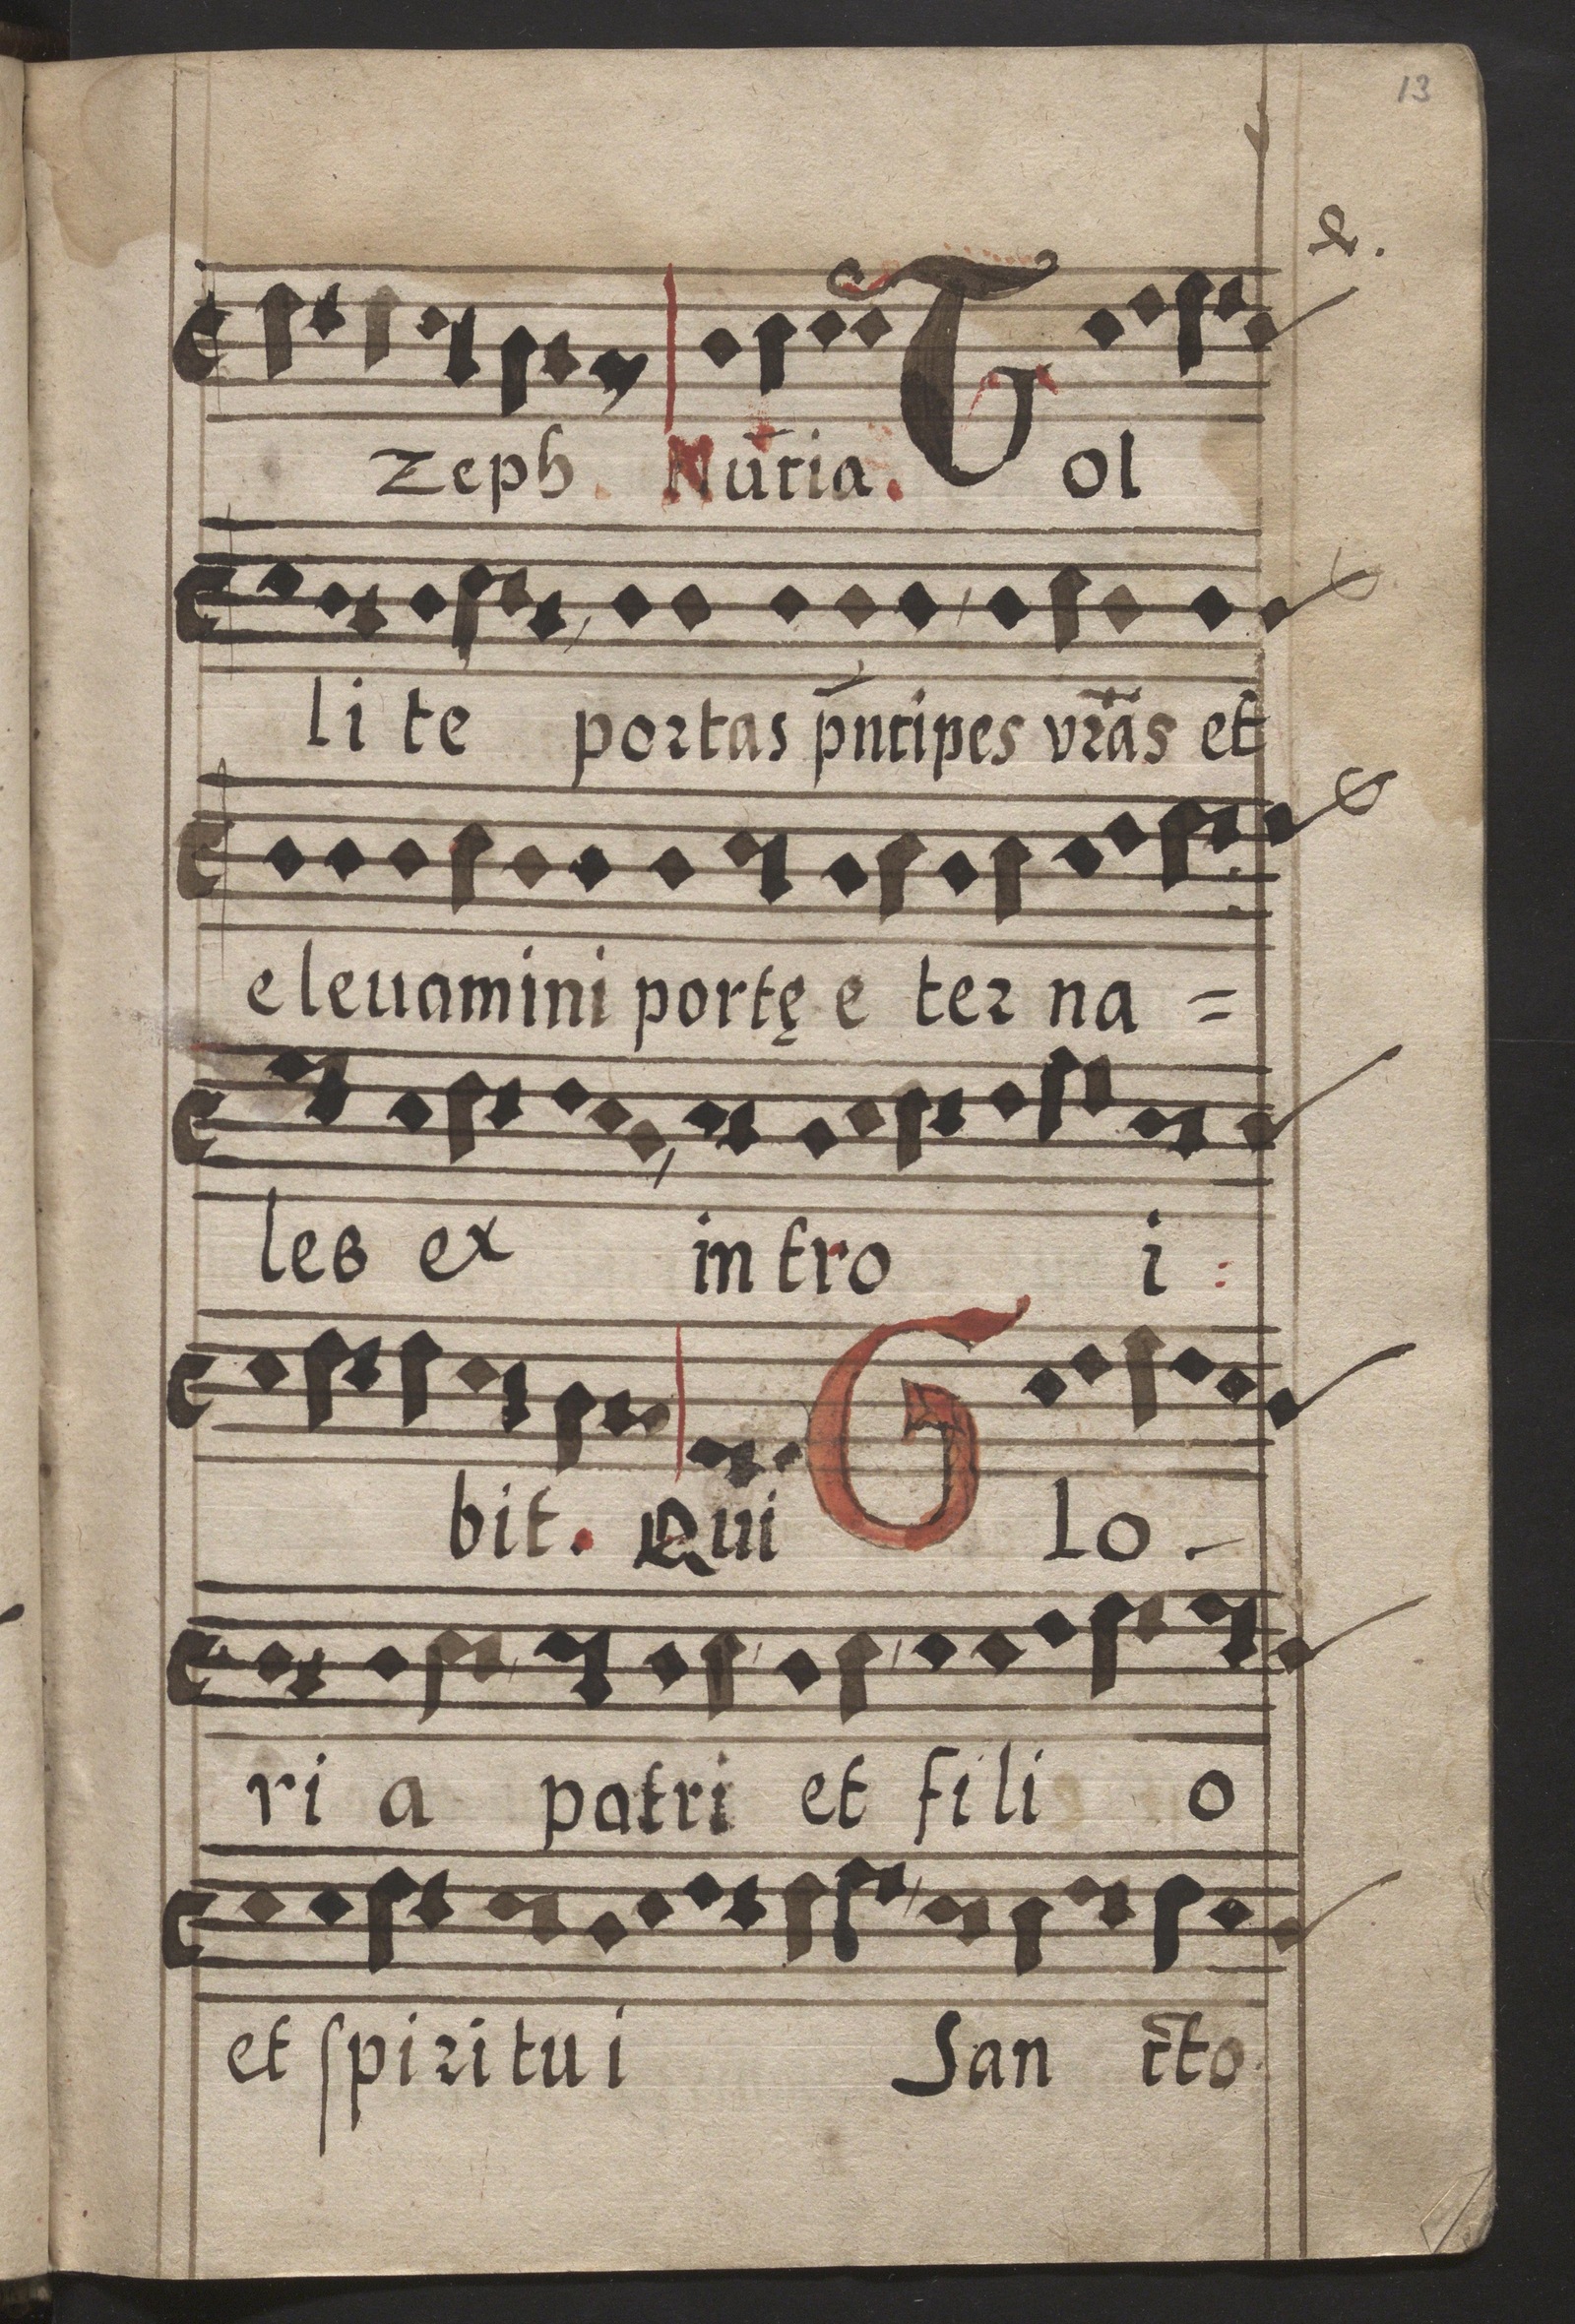 13
&.
zeph. Nūtia. Tol
li te portas pn̄cipes vr̄as et
eleuamini portę e ter na =
les ex in tro i :
bit. Qui Glo -
ri a patri et fili o
et ſpiritu i San c̄to